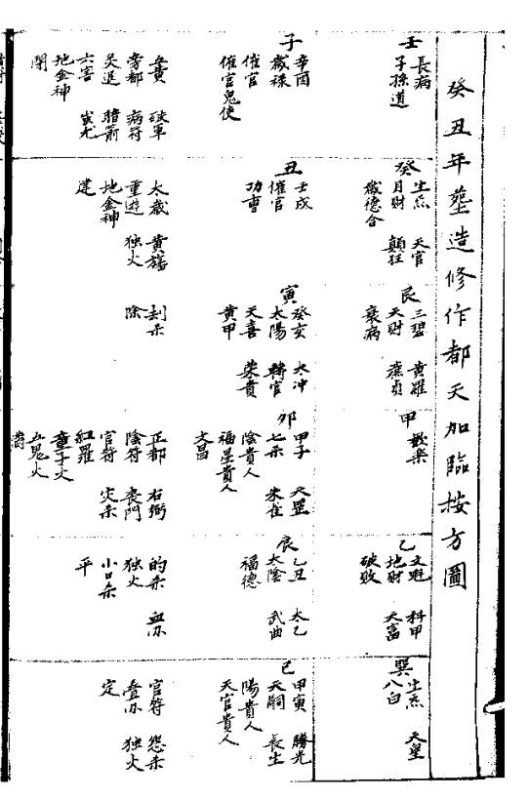 癸丑年塋造修作都天加臨按方圖
壬
長病
子孫道
子
辛酉
歲祿
催官
催官鬼使
五黃 破軍
旁都 病符
災退 暗箭
六害 蚩尤
地金神
閉
癸
生炁 天官
月財 顛狂
歲德合
丑
壬戌
催官
功曹
太歲 黃旛
重遊 独火
地金神
建
艮
三碧 黃羅
天財 廉貞
衰病
寅
癸亥 太冲
太陽 轉官
天喜 榮貴
黃甲
刦杀
除
甲
歡樂
卯
甲子 天罡
七杀 朱雀
陰貴人
福星貴人
文昌
正都 右弼
陰符 喪門
官符 灾杀
紅羅
童子火
五鬼火
满
乙
文魁 科甲
地財 大富
破敗
辰
乙丑 太乙
太陰 武曲
福德
的杀 血刃
独火
小口杀
平
巽
生炁 天皇
八白
巳
甲寅 勝光
天嗣 長生
陽貴人
天官貴人
官符 怨杀
叠刃 独火
定